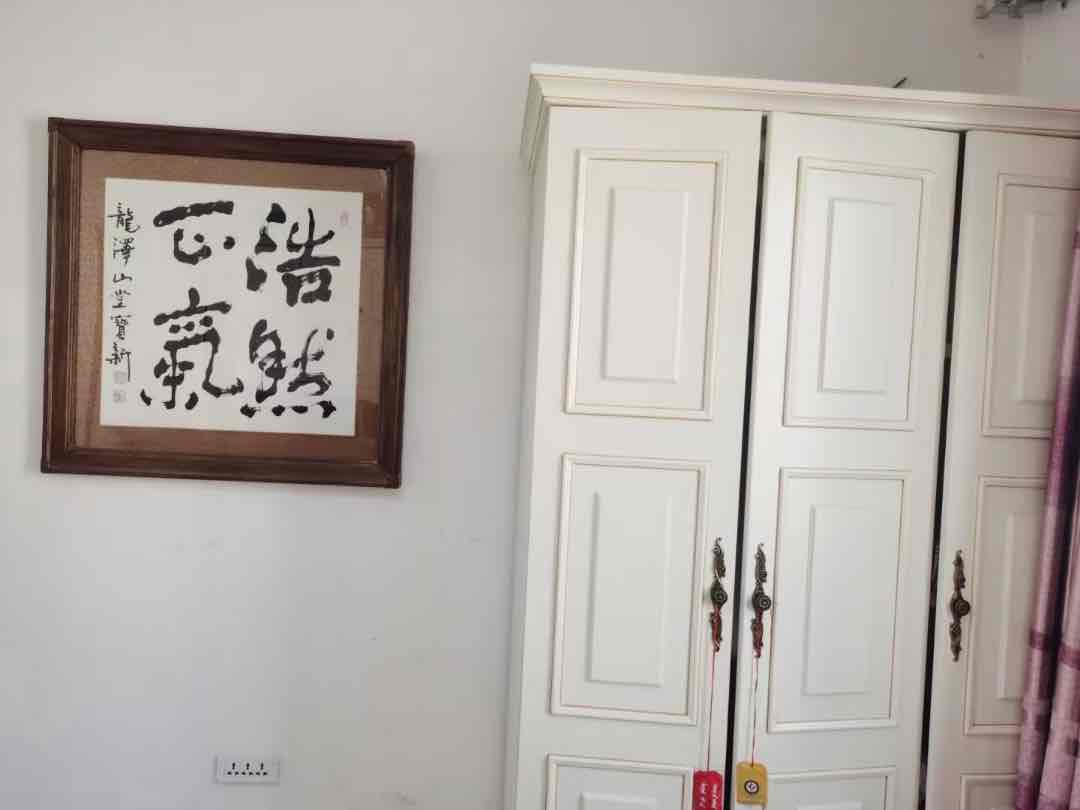 浩然
正氣
龍澤山堂寶新